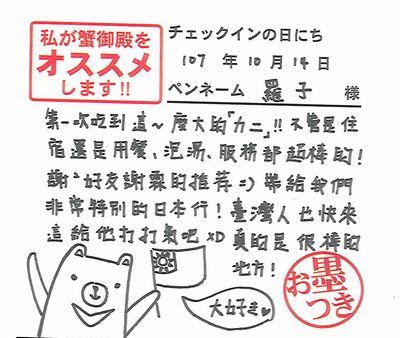 私が蟹御殿を
オススメ
します!!
チェックインの日にち
107 年 10 月 14 日
ペンネーム 羅子 様
第一次吃到這~麼大的「カニ」!! 不管是住
宿還是用餐、泡湯、服務都超棒的!
謝謝好友謝霖的推荐=) 帶給我們
非常特別的日本行! 臺灣人也快來
這給他打打氣吧 xD 真的是很棒的
地方!
大好き♥
お墨
つき